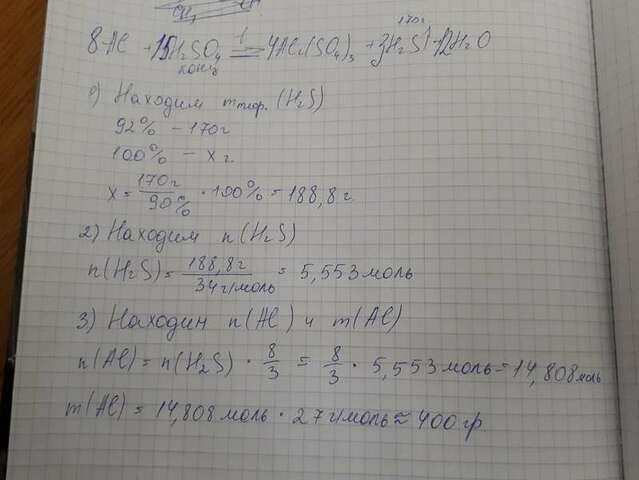 170г
8Al + 15H₂SO₄ = 4Al₂(SO₄)₃ + 3H₂S↑ + 12H₂O
конц
1) Находим mтеор. (H₂S)
92% – 170г
100% – x г.
x = 170г / 90% · 100% = 188,8 г.
2) Находим n(H₂S)
n(H₂S) = 188,8г / 34 г/моль = 5,553 моль
3) Находин n(Al) и m(Al)
n(Al) = n(H₂S) · 8/3 = 8/3 · 5,553 моль = 14,808 моль
m(Al) = 14,808 моль · 27 г/моль ≈ 400 гр